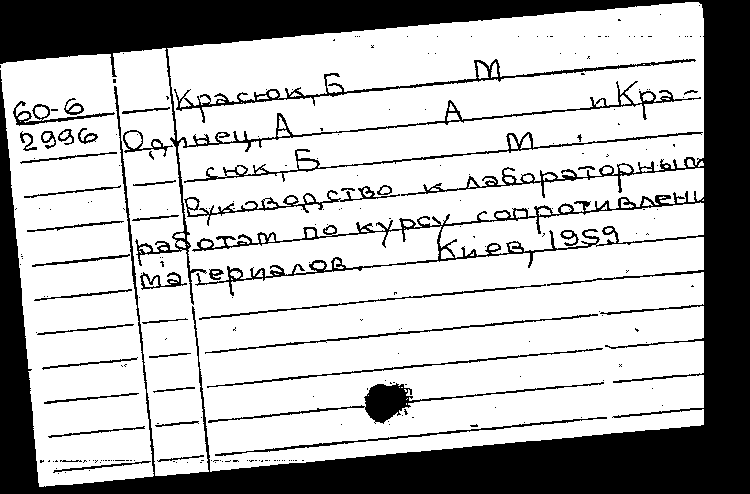 Красюк, Б М
60-6
2996
Одинец, А. А и Кра-
сюк, Б М.
Руководство к лабораторным
работам по курсу сопротивлени
материалов. Киев, 1959